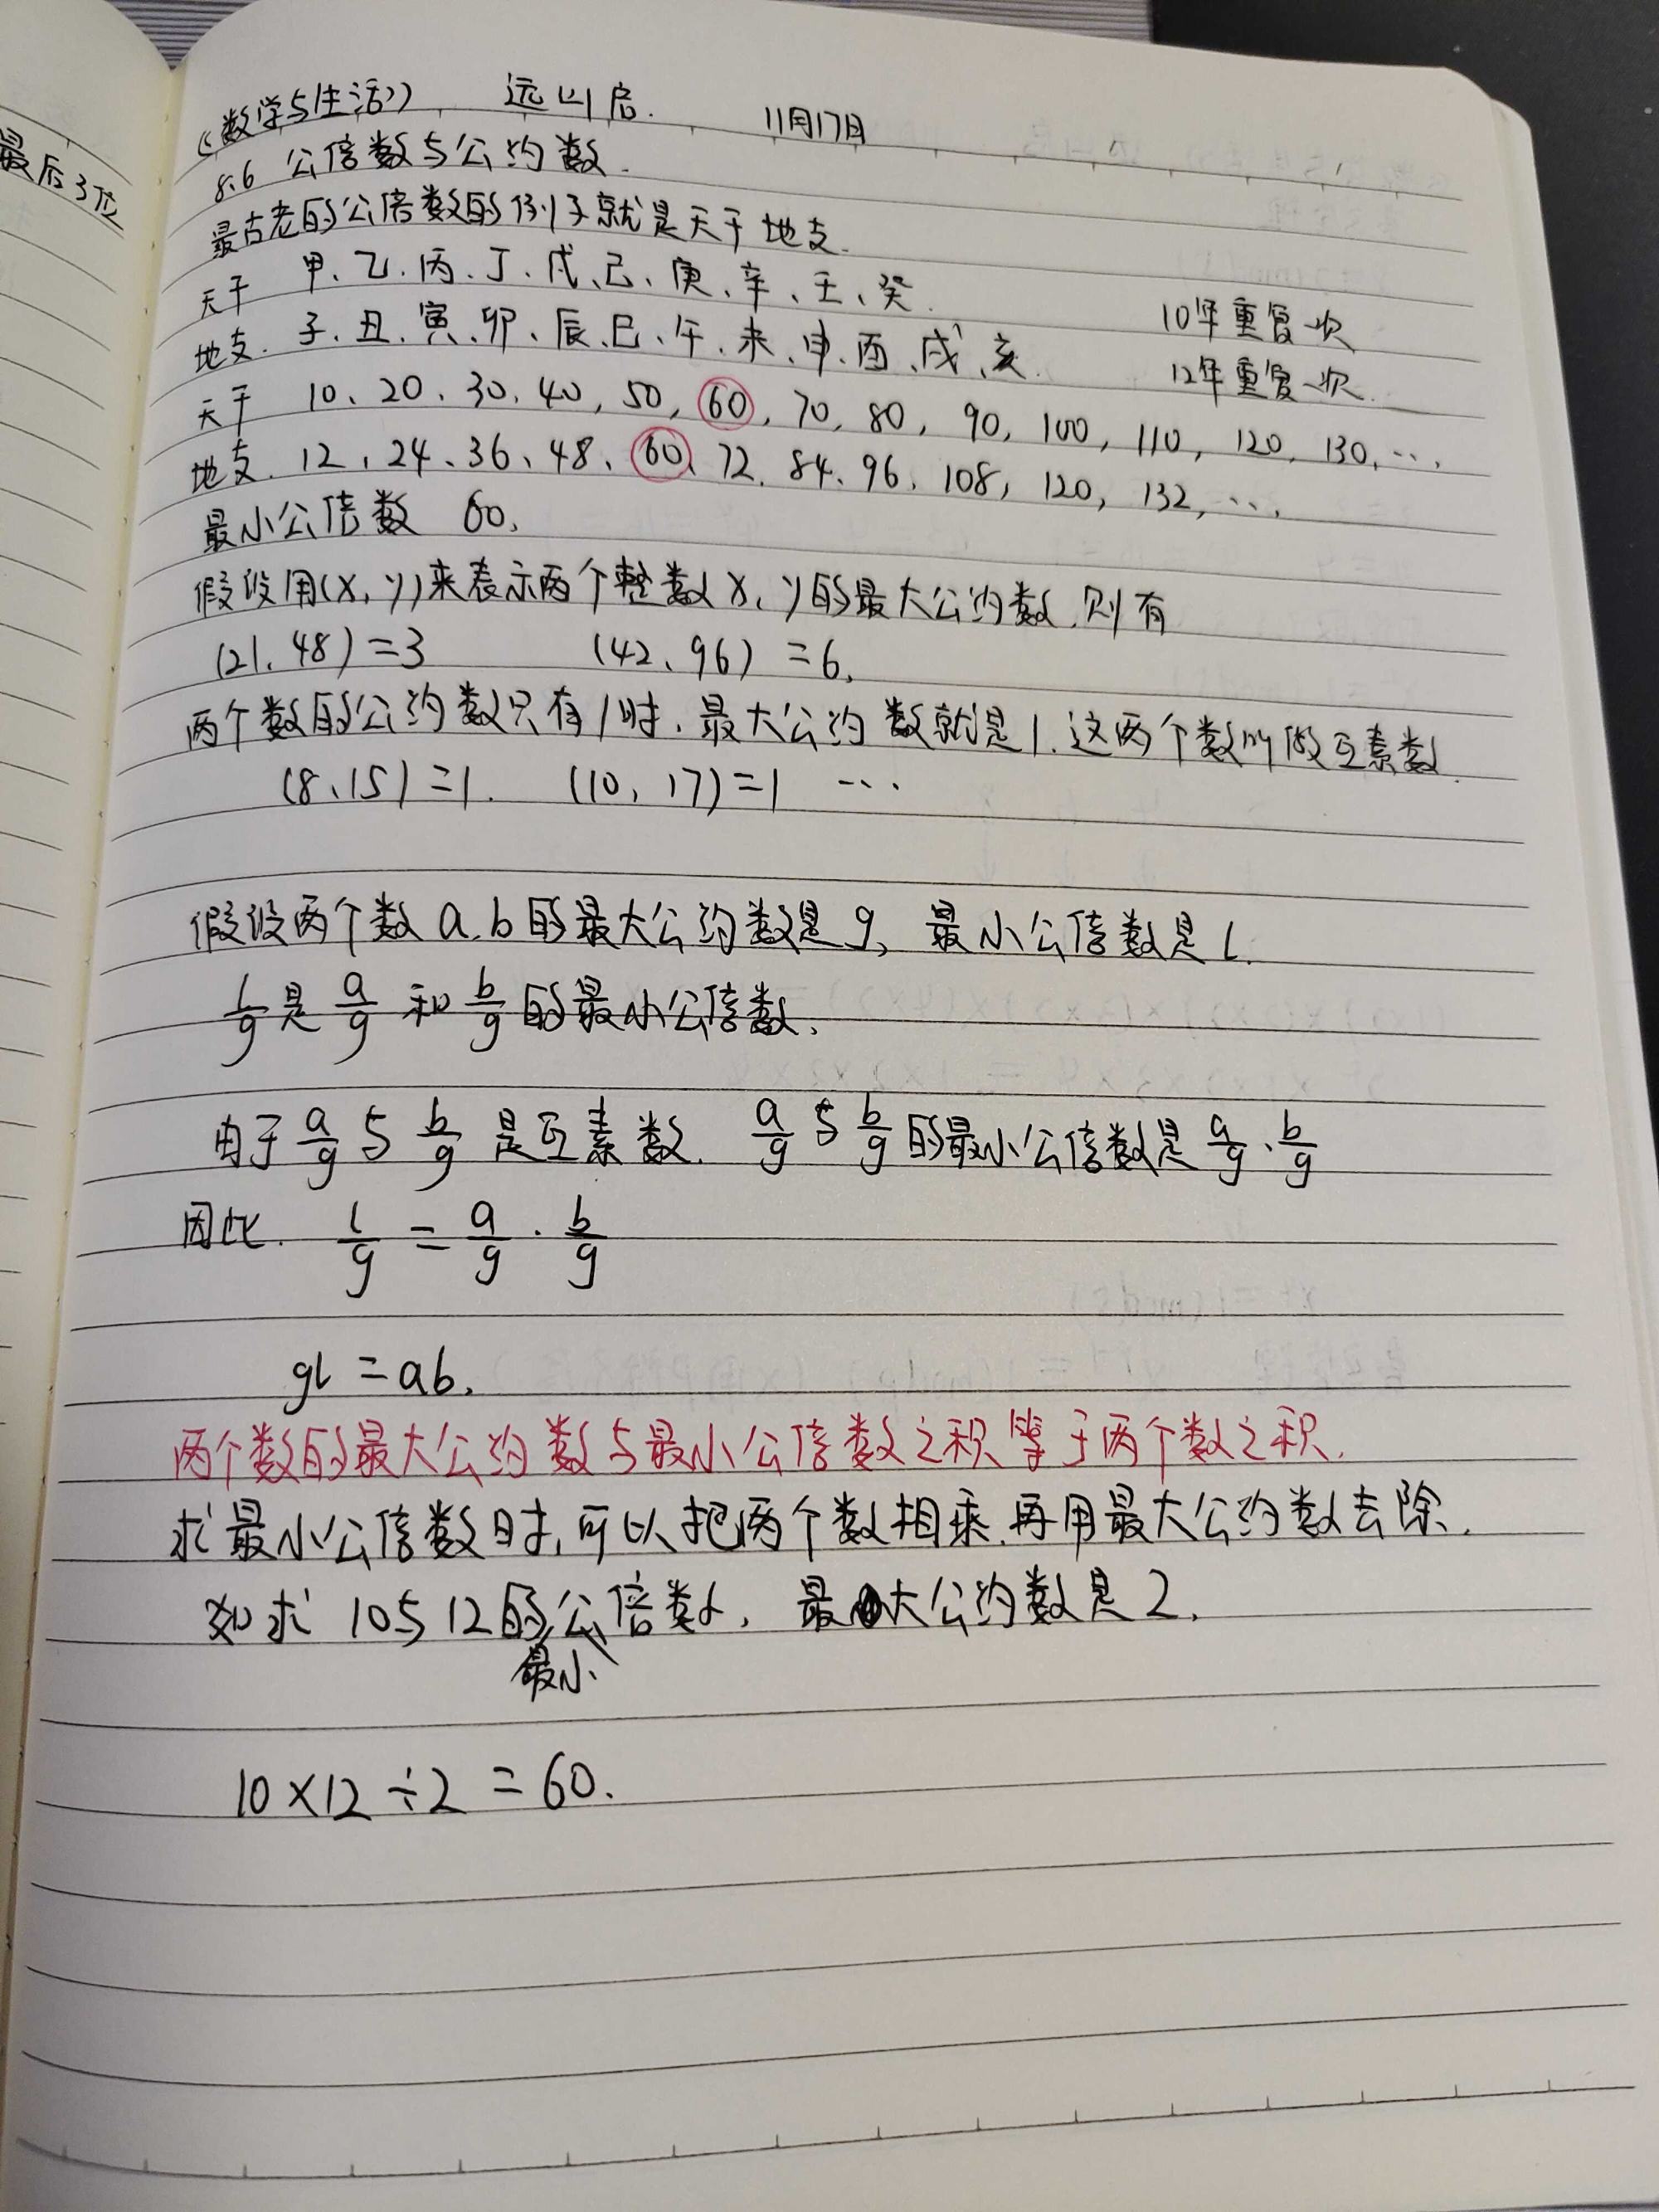 最后3位
《数学与生活》 远山启. 11月17日
8.6 公倍数与公约数.
最古老的公倍数的例子就是天干地支.
天干 甲、乙、丙、丁、戊、己、庚、辛、壬、癸. 10年重复一次
地支. 子、丑、寅、卯、辰、巳、午、未、申、酉、戌、亥. 12年重复一次.
天干 10、20、30、40, 50, 60, 70, 80, 90, 100, 110, 120, 130, …,
地支. 12, 24、36、48、60、72、84、96, 108, 120, 132, …,
最小公倍数 60,
假设用(x, y)来表示两个整数x, y的最大公约数,则有
(21、48)=3 (42、96)=6,
两个数的公约数只有1时,最大公约数就是1.这两个数叫做互素数.
(8、15)=1. (10, 17)=1 …
假设两个数a.b的最大公约数是g, 最小公倍数是l.
l/g是a/g和b/g的最小公倍数,
由于a/g与b/g是互素数. a/g与b/g的最小公倍数是a/g·b/g
因此. l/g = a/g · b/g
gl = ab,
两个数的最大公约数与最小公倍数之积等于两个数之积.
求最小公倍数时,可以把两个数相乘.再用最大公约数去除.
如求10与12的最小公倍数, 最大公约数是2,
10×12÷2=60.